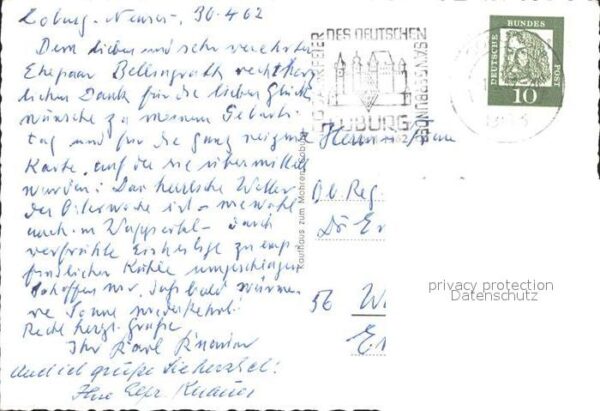 Coburg-Neuses, 30.4.62
Dem lieben und sehr verehrten
Ehepaar Bellingrath recht herz-
lichen Dank für die lieben Glück-
wünsche zu meinem Geburts-
tag und für die ganz reizende
Karte, auf der sie übermittelt
wurden! Das herrliche Wetter
der Osterwoche ist - wie wohl
auch in Wuppertal - durch
verfrühte Eisheilige zu emp-
findlicher Kühle umgeschlagen
hoffen wir, daß bald wärme-
re Sonne wiederkehrt!
Recht herzl. Grüße
Ihr Karl
und ich grüße Sie herzlich!
Ihre
Kaufhaus zum Mohren, Coburg
DES DEUTSCHEN
SÄNGERBUNDES
COBURG
DEUTSCHE
BUNDES
POST
10
Herrn u. Frau
Ob. Reg.
Dr. E
56 W
privacy protection
Datenschutz